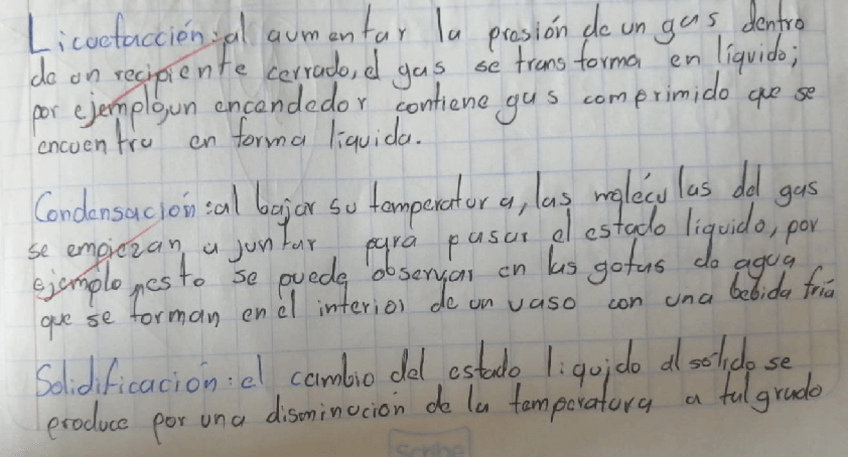 Licuefacción: al aumentar la presión de un gas dentro
de un recipiente cerrado, el gas se transforma en líquido;
por ejemplo, un encendedor contiene gas comprimido que se
encuentra en forma líquida.
Condensación: al bajar su temperatura, las moléculas del gas
se empiezan a juntar para pasar el estado líquido, por
ejemplo, esto se puede observar en las gotas de agua
que se forman en el interior de un vaso con una bebida fría
Solidificación: el cambio del estado líquido al sólido se
produce por una disminución de la temperatura a tal grado
Scribe